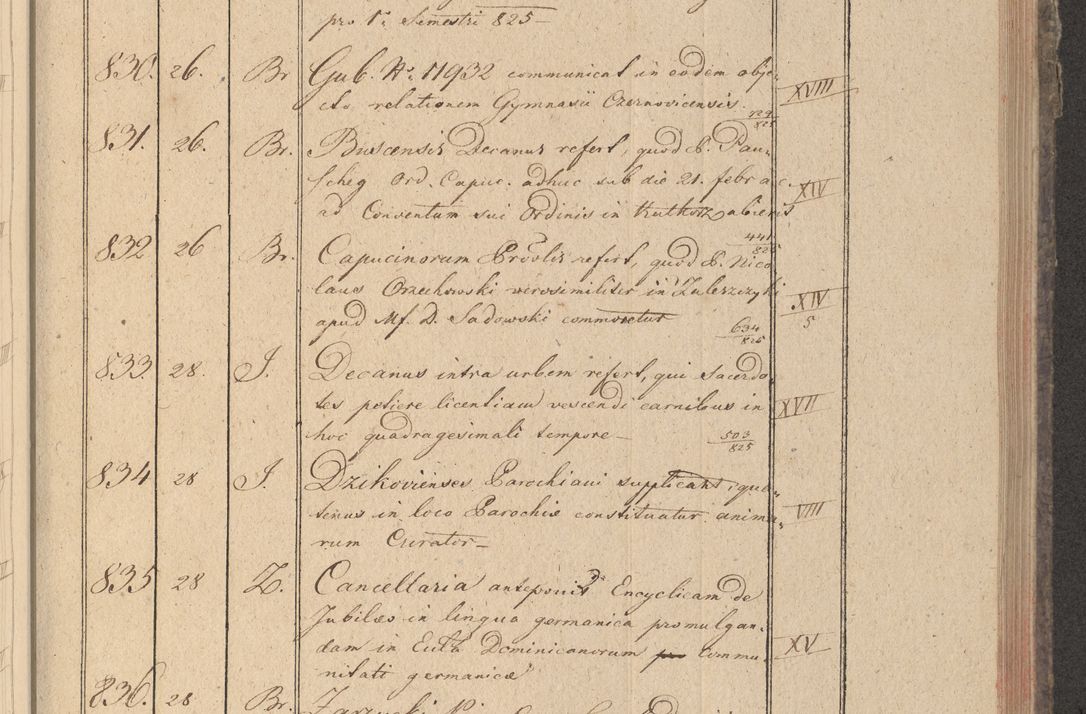 pro 1º Semestri 825 —
830. 26. Br. Gub. Nº 11932 communicat in eodem obje-
cto relationem Gymnasii Czernovicensis. XVIII
831. 26. Br. Buscensis Decanus refert, quod P. Pau-
scheg Ord. Capuc. adhuc sub die 21. febr a. c. XIV
ad Conventum sui Ordinis in Kutkorz abierit
441/825
832 26 Br. Capucinorum Provlis refert, quod P. Nico
laus Orzechowski verosimiliter in Zaleszczyki XIV
apud Mf. D. Sadowski commoretur 634/825 5
833. 28. J. Decanus intra urbem refert, qui Sacerdo-
tes petiere licentiam vescendi carnibus in XVII
hoc quadragesimali tempore — 503/825
834 28 J. Dzikovienses Parochiani supplicant, qua-
tenus in loco Parochiæ constituatur anima- VIII
rum Curator —
835 28 Z. Cancellaria anteponit Encyclicam de
Jubilæo in lingua germanica promulgan-
dam in Eccla Dominicanorum Commu- XV
nitati germanicæ
836. 28 Br.